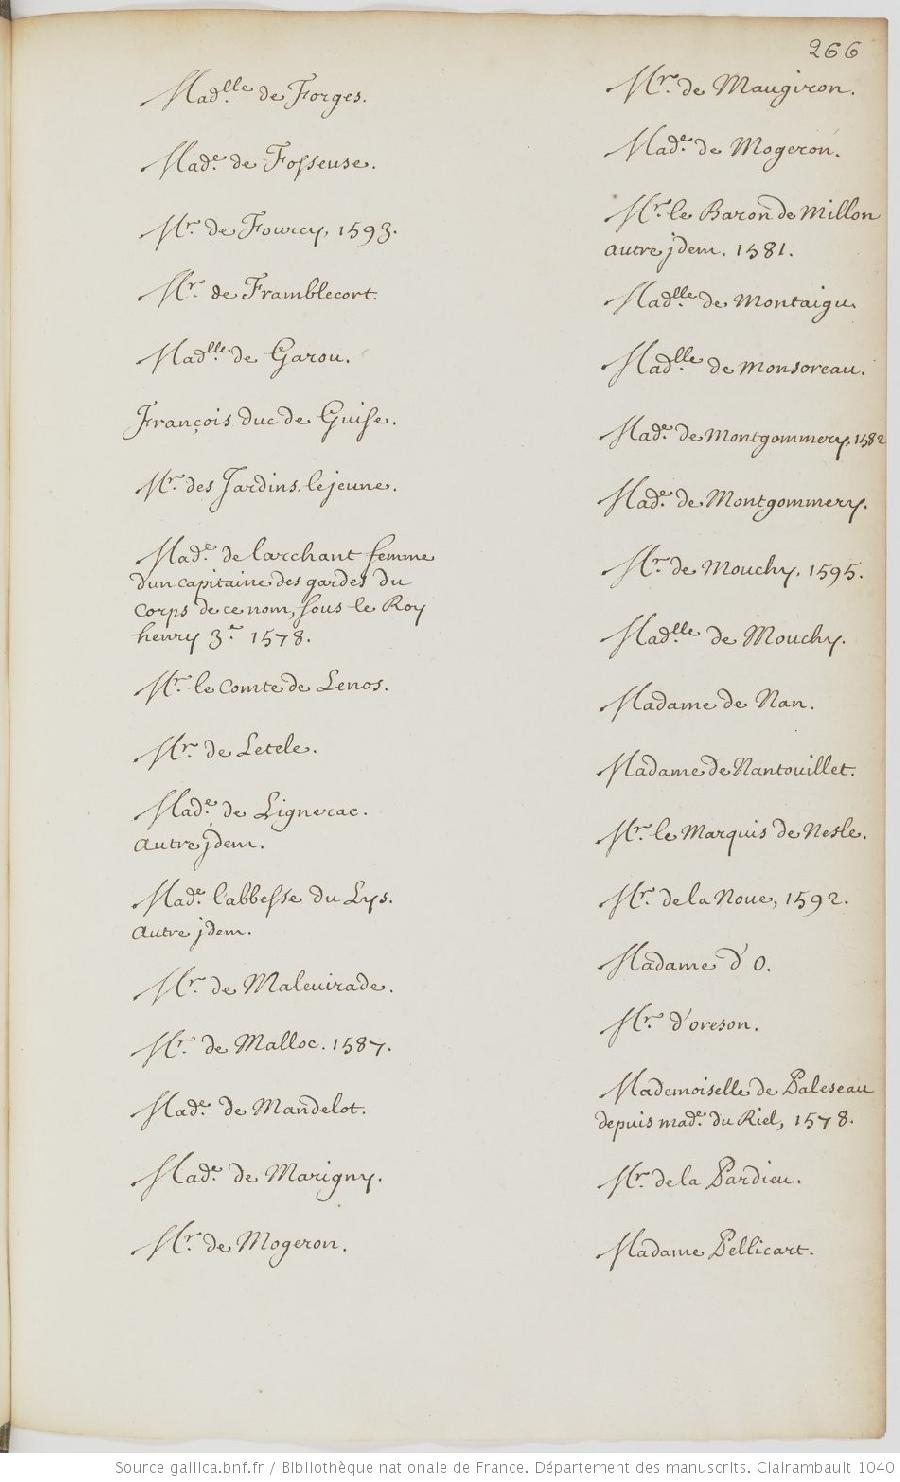 266
Mad.lle de Forges.
Made. de Fosseuse.
Mr. de Fourcy, 1593.
Mr. de Framblecort.
Mad.lle de Garou.
François duc de Guise.
Mr. des Jardins, le jeune.
Made. de larchant femme
d'un capitaine des gardes du
Corps de ce nom, sous le Roy
henry 3.e 1578.
Mr. le Comte de Lenos.
Mr. de Letele.
Made. de Lignerac.
autre jdem.
Made. l'abbesse du Lys.
Autre jdem.
Mr. de Malevirade.
Mr. de Malloc. 1587.
Made. de Mandelot.
Made. de Marigny.
Mr. de Mogeron.
Mr. de Maugiron.
Made. de Mogeron.
Mr. le Baron de Millon
autre jdem. 1581.
Mad.lle de Montaigu
Mad.lle de Monsoreau.
Made. de Montgommery, 1582
Made. de Montgommery.
Mr. de Mouchy, 1595.
Mad.lle de Mouchy.
Madame de Nan.
Madame de Nantouillet.
Mr. le Marquis de Nesle.
Mr. de la Noue, 1592.
Madame d'O.
Mr. d'oreson.
Mademoiselle de Paleseau
depuis made. du Riel, 1578.
Mr. de la Pardieu.
Madame Pellicart.
Source gallica.bnf.fr / Bibliothèque nationale de France. Département des manuscrits. Clairambault 1040